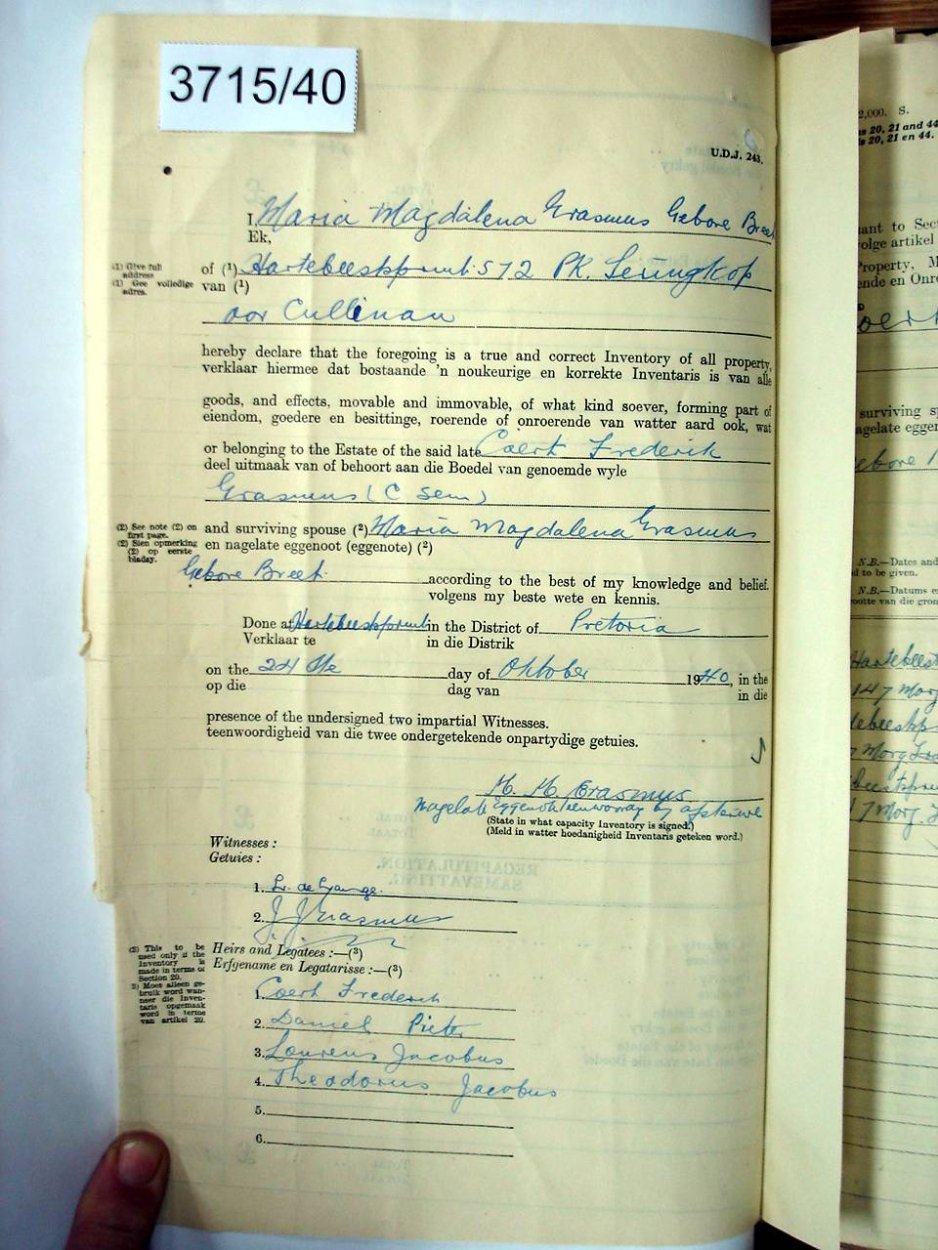 3715/40
U.D.J. 243.
I, Maria Magdalena Erasmus Gebore Breet
Ek,
(1) Give full address
(1) Gee volledige adres.
of (1) Hartebeestspruit 572 PK. Seringkop
van (1)
oor Cullinan
hereby declare that the foregoing is a true and correct Inventory of all property,
verklaar hiermee dat bostaande 'n noukeurige en korrekte Inventaris is van alle
goods, and effects, movable and immovable, of what kind soever, forming part of
eiendom, goedere en besittinge, roerende of onroerende van watter aard ook, wat
or belonging to the Estate of the said late Coert Frederik
deel uitmaak van of behoort aan die Boedel van genoemde wyle
Erasmus (C sem)
(2) See note (2) on first page.
(2) Sien opmerking (2) op eerste bladsy.
and surviving spouse (2) Maria Magdalena Erasmus
en nagelate eggenoot (eggenote) (2)
Gebore Breet according to the best of my knowledge and belief.
volgens my beste wete en kennis.
Done at Hartebeestspruit in the District of Pretoria
Verklaar te in die Distrik
on the 24 ste day of Oktober 1940, in the
op die dag van in die
presence of the undersigned two impartial Witnesses.
teenwoordigheid van die twee ondergetekende onpartydige getuies.
M. M. Erasmus
Nagelate Eggenote teenwoordig by afsterwe
(State in what capacity Inventory is signed.)
(Meld in watter hoedanigheid Inventaris geteken word.)
Witnesses :
Getuies :
1.
2. J J Erasmus
(3) This to be used only if the Inventory is made in terms of Section 20.
3) Moet alleen gebruik word wanneer die Inventaris opgemaak word in terme van artikel 20.
Heirs and Legatees :—(3)
Erfgename en Legatarisse :—(3)
1. Coert Frederik
2. Daniel Pieter
3. Lourens Jacobus
4. Theodorus Jacobus
5.
6.
2,000. S.
20, 21 and 44
20, 21 en 44.